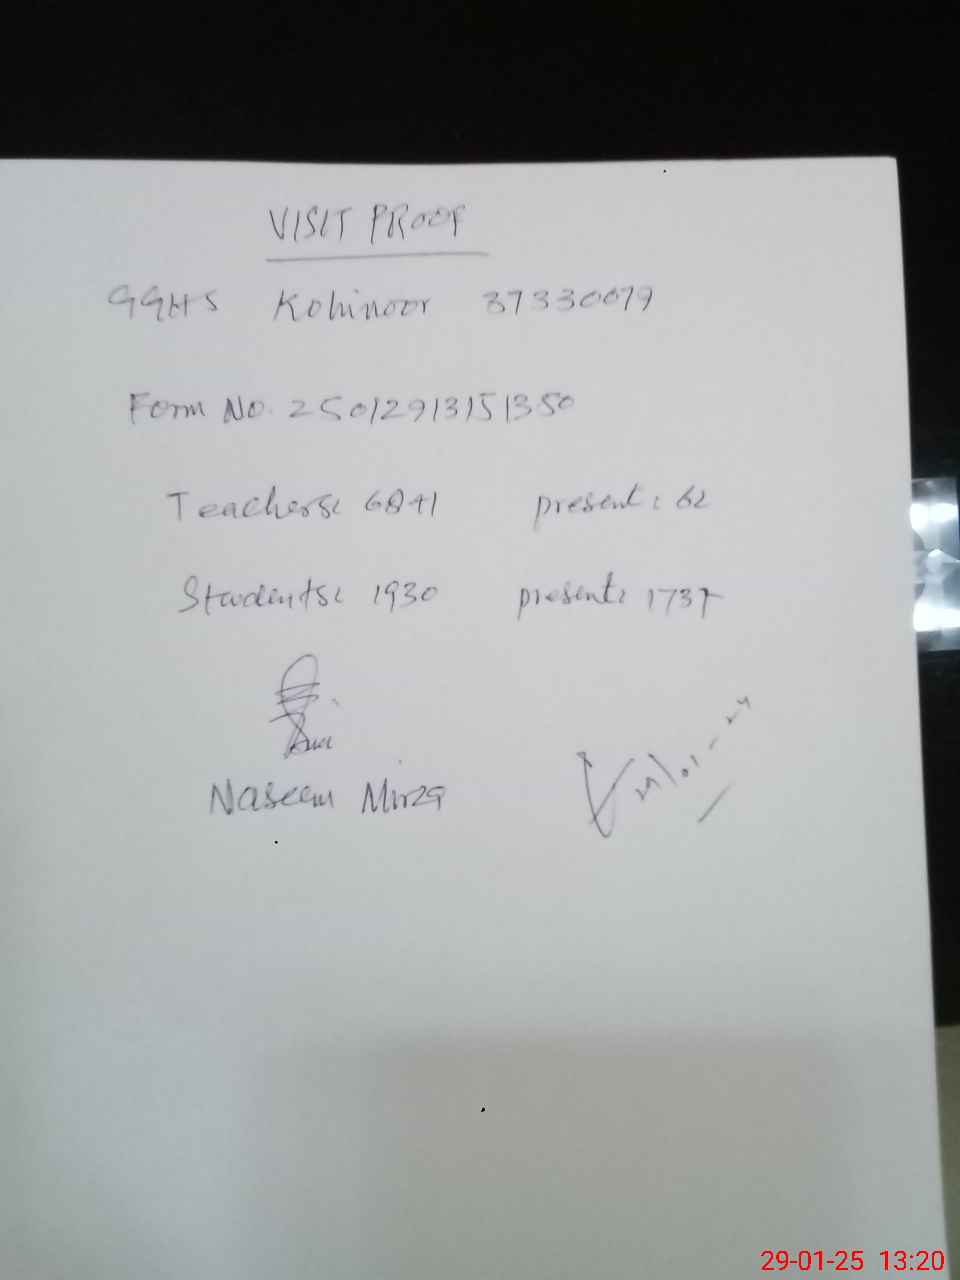 VISIT PROOF
GGHS Kohinoor 37330079
Form No. 25012913151350
Teachers: 68+1 present: 62
Students: 1930 present: 1737
Naseem Mirza
29-01-25 13:20